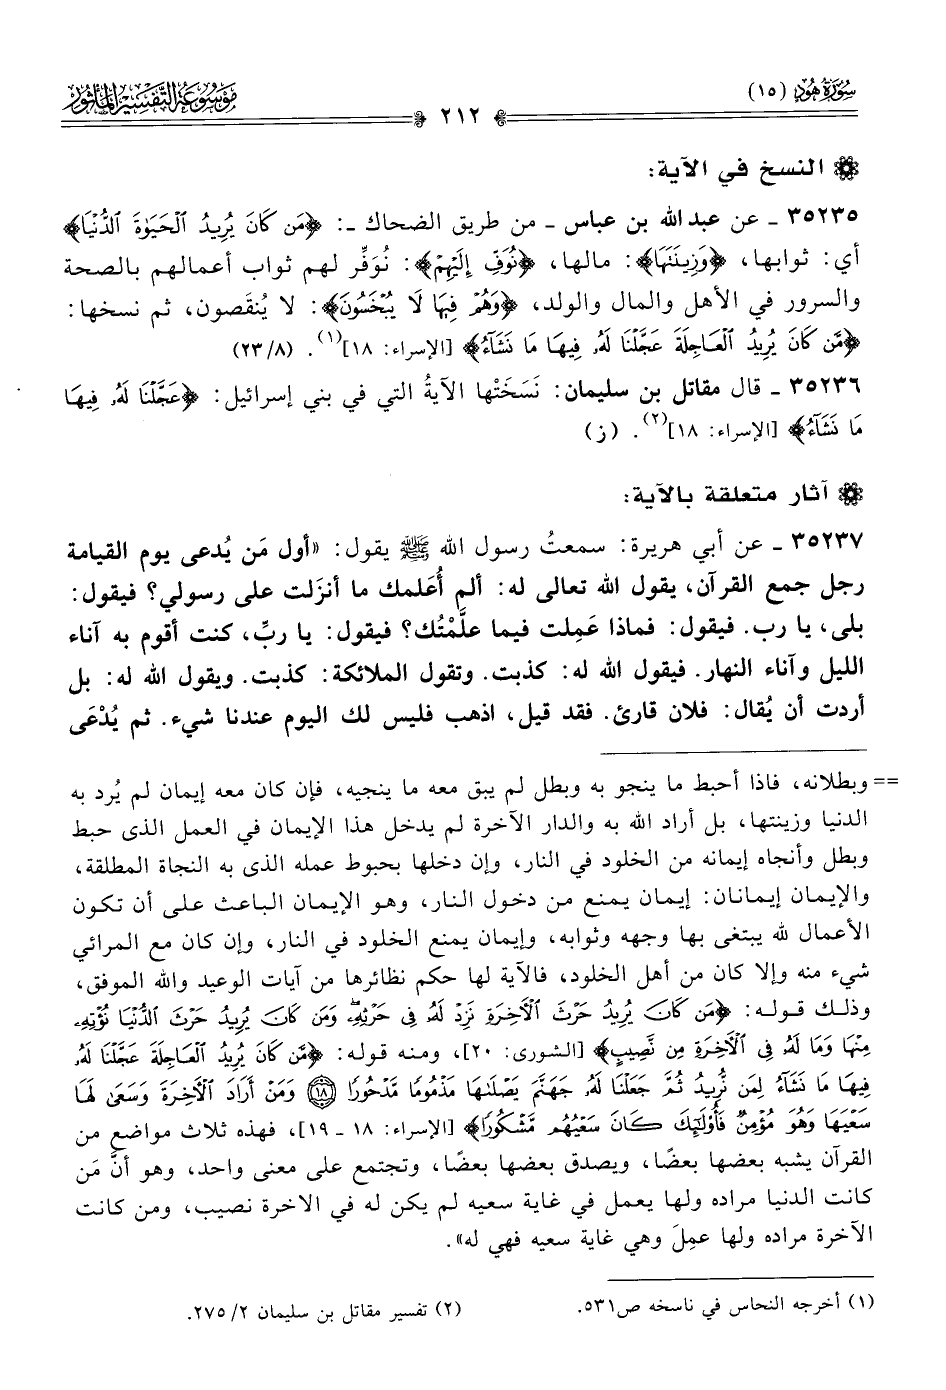 سُورَةُ هُودٍ (١٥)
٢١٢
مَوْسُوعَة التَّفسِير المَأثُور
النسخ في الآية:
٣٥٢٣٥ ـ عن عبد الله بن عباس ـ من طريق الضحاك ـ: ﴿مَن كَانَ يُرِيدُ ٱلْحَيَوٰةَ ٱلدُّنْيَا﴾
أي: ثوابها، ﴿وَزِينَتَهَا﴾: مالها، ﴿نُوَفِّ إِلَيْهِمْ﴾: نُوَفِّر لهم ثواب أعمالهم بالصحة
والسرور في الأهل والمال والولد، ﴿وَهُمْ فِيهَا لَا يُبْخَسُونَ﴾: لا يُنقَصون، ثم نسخها:
﴿مَّن كَانَ يُرِيدُ ٱلْعَاجِلَةَ عَجَّلْنَا لَهُۥ فِيهَا مَا نَشَآءُ﴾ [الإسراء: ١٨](١). (٢٣/٨)
٣٥٢٣٦ ـ قال مقاتل بن سليمان: نَسَخَتْها الآيةُ التي في بني إسرائيل: ﴿عَجَّلْنَا لَهُۥ فِيهَا
مَا نَشَآءُ﴾ [الإسراء: ١٨](٢). (ز)
آثار متعلقة بالآية:
٣٥٢٣٧ ـ عن أبي هريرة: سمعتُ رسول الله ﷺ يقول: «أول مَن يُدعى يوم القيامة
رجل جمع القرآن، يقول الله تعالى له: ألم أُعَلمك ما أنزَلت على رسولي؟ فيقول:
بلى، يا رب. فيقول: فماذا عَمِلت فيما علَّمْتُك؟ فيقول: يا ربِّ، كنت أقوم به آناء
الليل وآناء النهار. فيقول الله له: كذبت. وتقول الملائكة: كذبت. ويقول الله له: بل
أردت أن يُقال: فلان قارئ. فقد قيل، اذهب فليس لك اليوم عندنا شيء. ثم يُدْعَى
== وبطلانه، فاذا أحبط ما ينجو به وبطل لم يبق معه ما ينجيه، فإن كان معه إيمان لم يُرد به
الدنيا وزينتها، بل أراد الله به والدار الآخرة لم يدخل هذا الإيمان في العمل الذى حبط
وبطل وأنجاه إيمانه من الخلود في النار، وإن دخلها بحبوط عمله الذى به النجاة المطلقة،
والإيمان إيمانان: إيمان يمنع من دخول النار، وهو الإيمان الباعث على أن تكون
الأعمال لله يبتغى بها وجهه وثوابه، وإيمان يمنع الخلود في النار، وإن كان مع المرائي
شيء منه وإلا كان من أهل الخلود، فالآية لها حكم نظائرها من آيات الوعيد والله الموفق،
وذلك قوله: ﴿مَن كَانَ يُرِيدُ حَرْثَ ٱلْأَخِرَةِ نَزِدْ لَهُۥ فِى حَرْثِهِۦ ۖ وَمَن كَانَ يُرِيدُ حَرْثَ ٱلدُّنْيَا نُؤْتِهِۦ
مِنْهَا وَمَا لَهُۥ فِى ٱلْأَخِرَةِ مِن نَّصِيبٍ﴾ [الشورى: ٢٠]، ومنه قوله: ﴿مَّن كَانَ يُرِيدُ ٱلْعَاجِلَةَ عَجَّلْنَا لَهُۥ
فِيهَا مَا نَشَآءُ لِمَن نُّرِيدُ ثُمَّ جَعَلْنَا لَهُۥ جَهَنَّمَ يَصْلَىٰهَا مَذْمُومًا مَّدْحُورًا ١٨ وَمَنْ أَرَادَ ٱلْأَخِرَةَ وَسَعَىٰ لَهَا
سَعْيَهَا وَهُوَ مُؤْمِنٌ فَأُوْلَٰٓئِكَ كَانَ سَعْيُهُم مَّشْكُورًا﴾ [الإسراء: ١٨ ـ ١٩]، فهذه ثلاث مواضع من
القرآن يشبه بعضها بعضًا، ويصدق بعضها بعضًا، وتجتمع على معنى واحد، وهو أنَّ مَن
كانت الدنيا مراده ولها يعمل في غاية سعيه لم يكن له في الاخرة نصيب، ومن كانت
الآخرة مراده ولها عمِلَ وهي غاية سعيه فهي له».
(١) أخرجه النحاس في ناسخه ص٥٣١.
(٢) تفسير مقاتل بن سليمان ٢/ ٢٧٥.